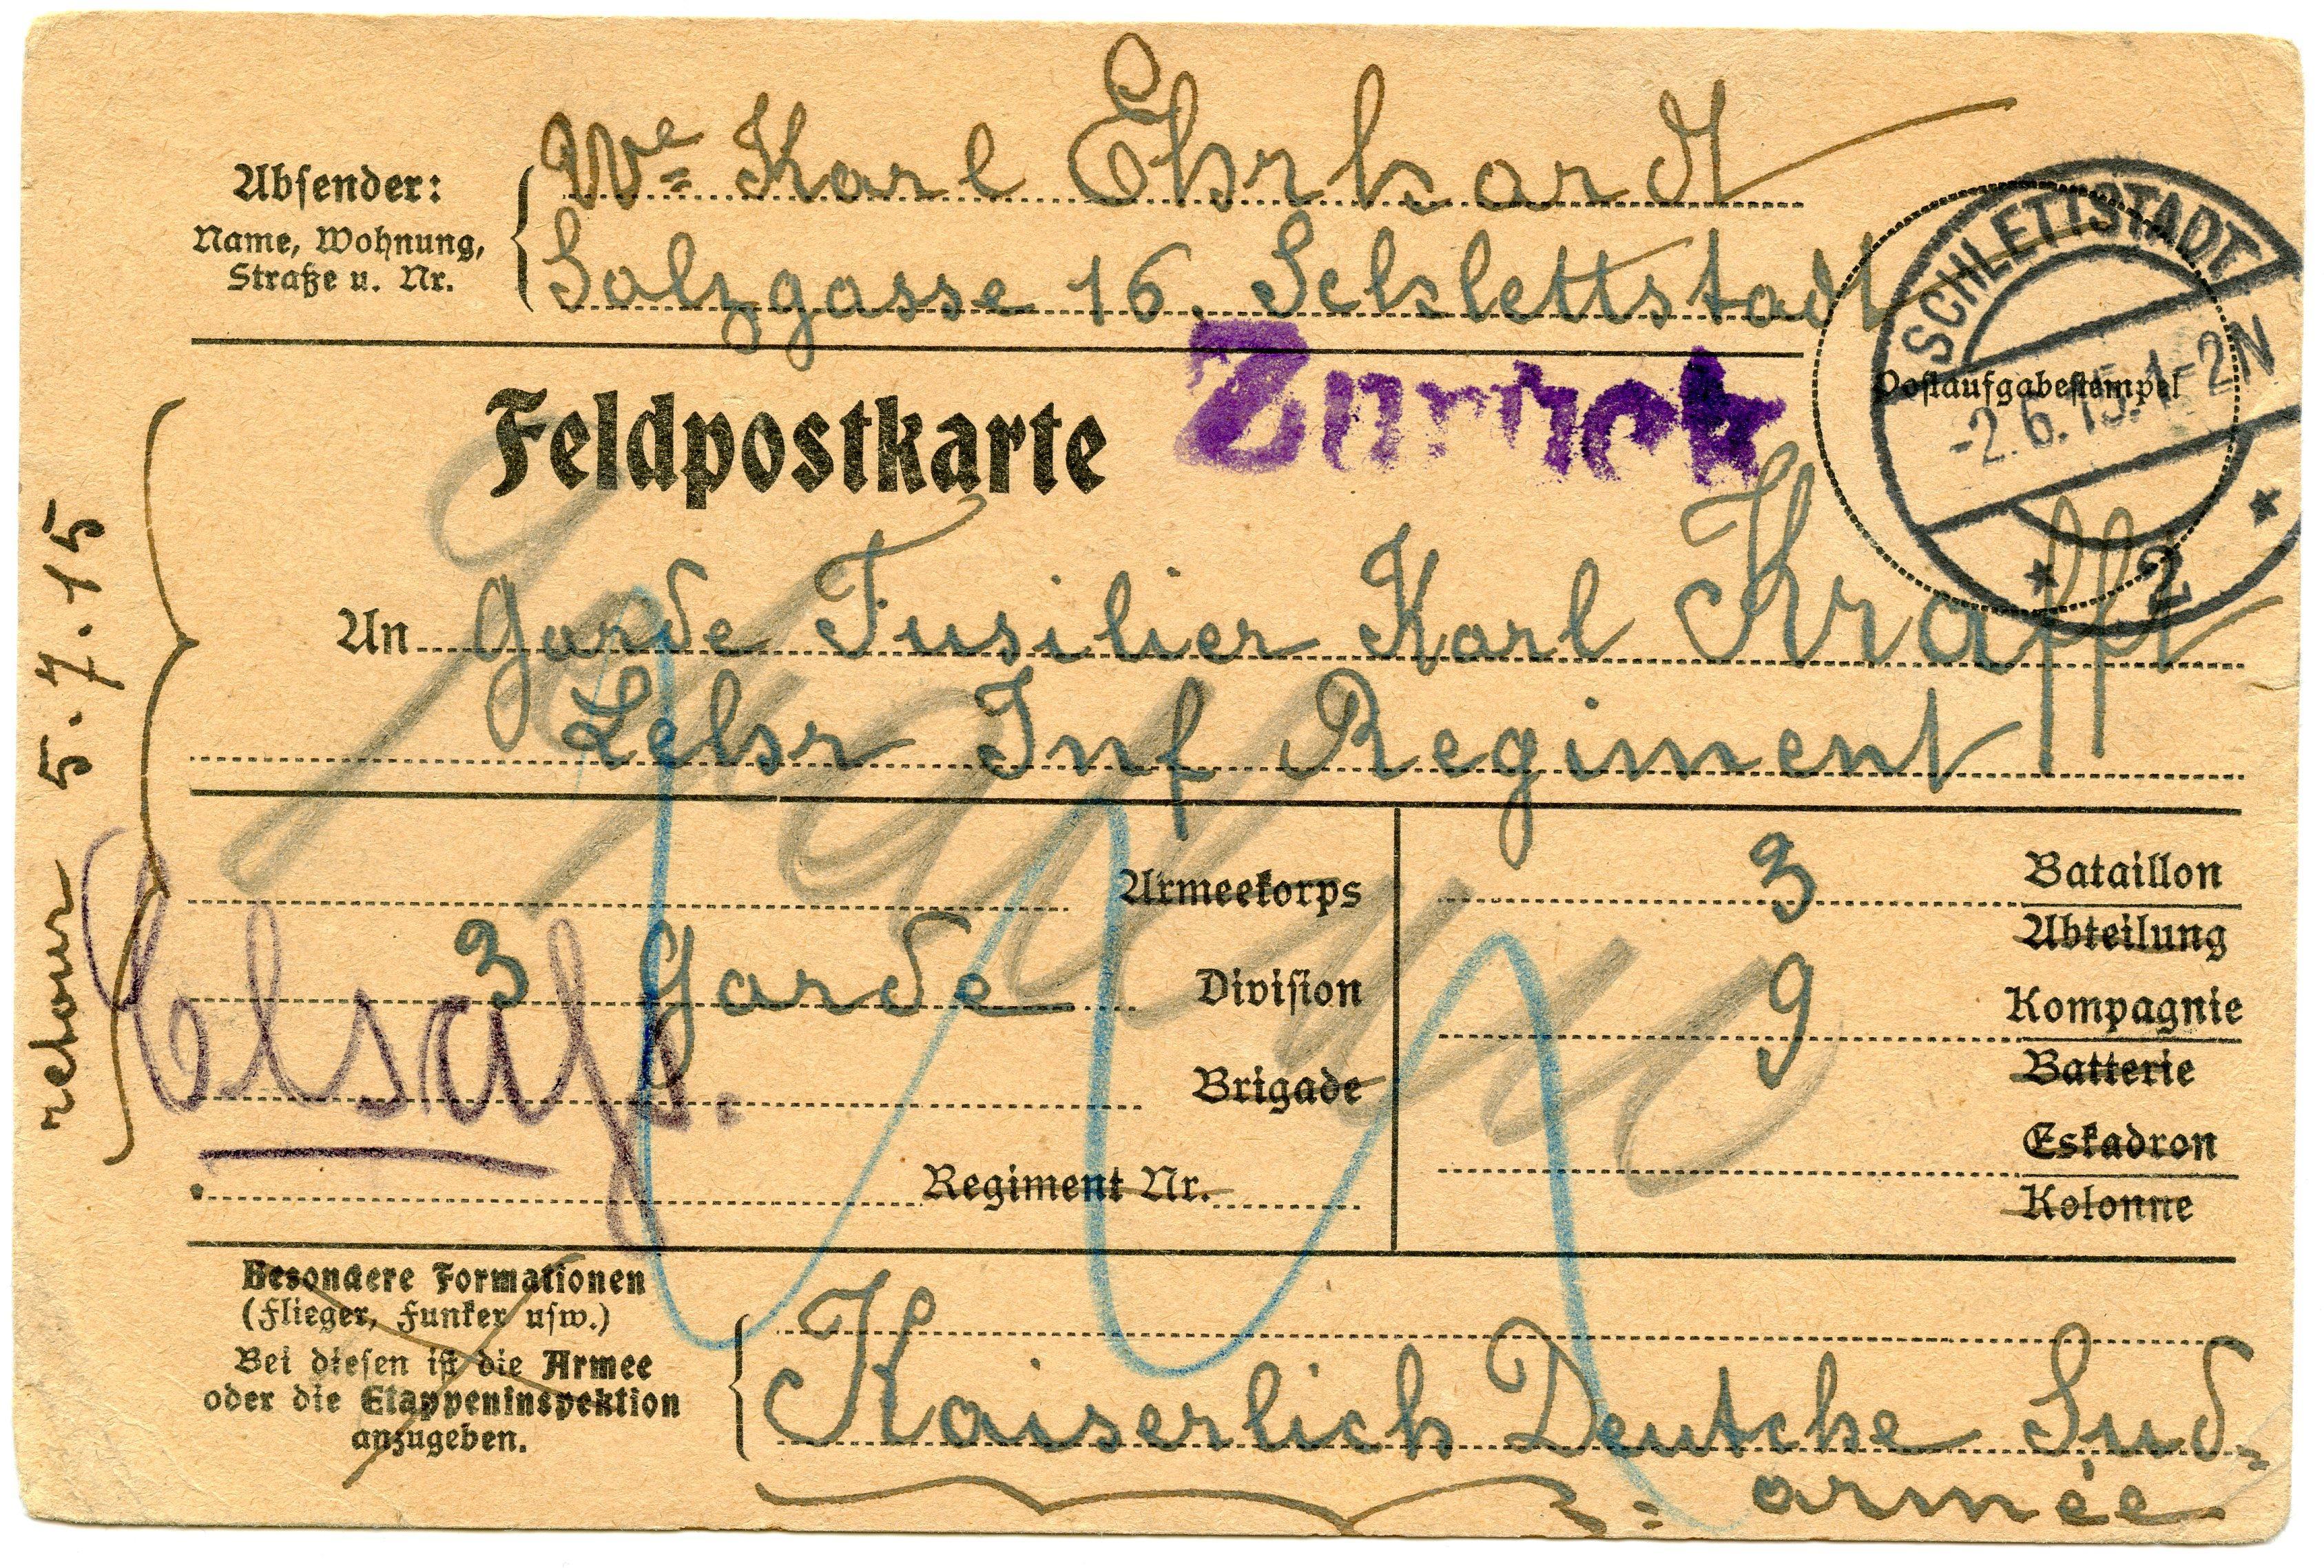 Wᵉ Karl Ehrhardt
Absender:
Name, Wohnung,
Straße u. Nr.
Salzgasse 16. Schlettstadt
SCHLETTSTADT
-2.6.15.1-2N
* 2 *
Postaufgabestempel
Feldpostkarte
Zurück
An Garde Fusilier Karl Krafft
Lehr Inf Regiment
retour 5.7.15
Armeekorps
3 Garde Division
Brigade
Regiment Nr.
3 Bataillon
Abteilung
9 Kompagnie
Batterie
Eskadron
Kolonne
Elsaß.
Besondere Formationen
(Flieger, Funker usw.)
Bei diesen ist die Armee
oder die Etappeninspektion
anzugeben.
Kaiserlich Deutche Sud=
armée